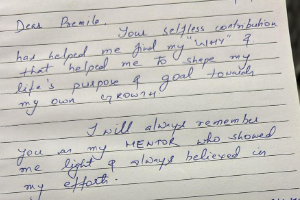 Dear Premile,
Your selfless contribution
has helped me find my "WHY" &
that helped me to shape my
life's purpose & goal towards
my own GROWTH
I will always remember
you as my MENTOR who showed
me light & always believed in
my efforts.